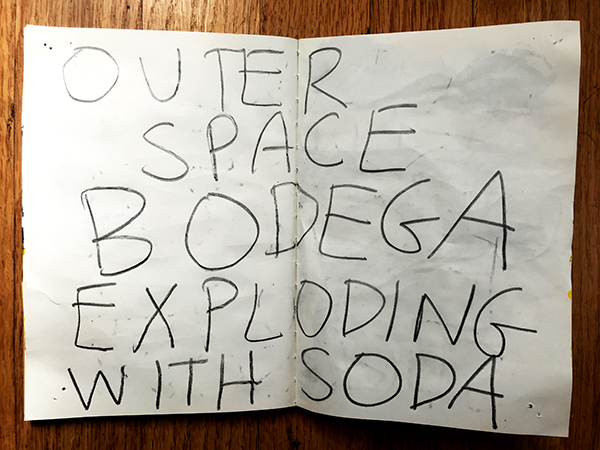 OUTER
SPACE
BODEGA
EXPLODING
WITH SODA